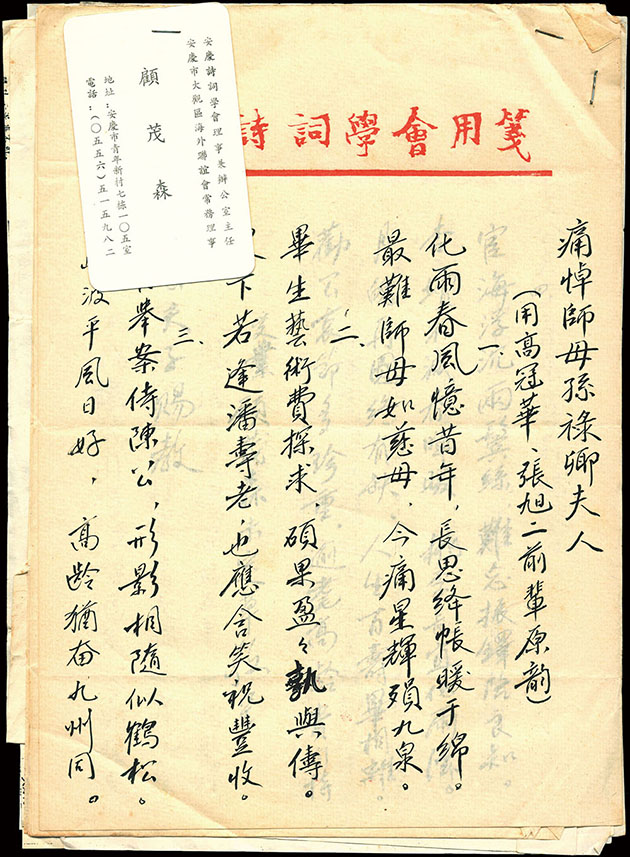 安慶詩詞學會理事兼辦公室主任
安慶市大觀區海外聯誼會常務理事
顧茂森
地址：安慶市青年新村七棟一〇五室
電話：（〇五五六）五一五九八二
詩詞學會用箋
痛悼師母孫祿卿夫人
（用高冠華、張旭二前輩原韵）
一、
化雨春風憶昔年，長思絳帳暖于綿。
最難師母如慈母，今痛星輝殞九泉。
二、
畢生藝術費探求，碩果盈々孰與傳。
下若逢潘壽老，也應含笑祝豐收。
三、
舉案侍陳公，形影相隨似鶴松。
波平風日好，高齡猶奮九州同。